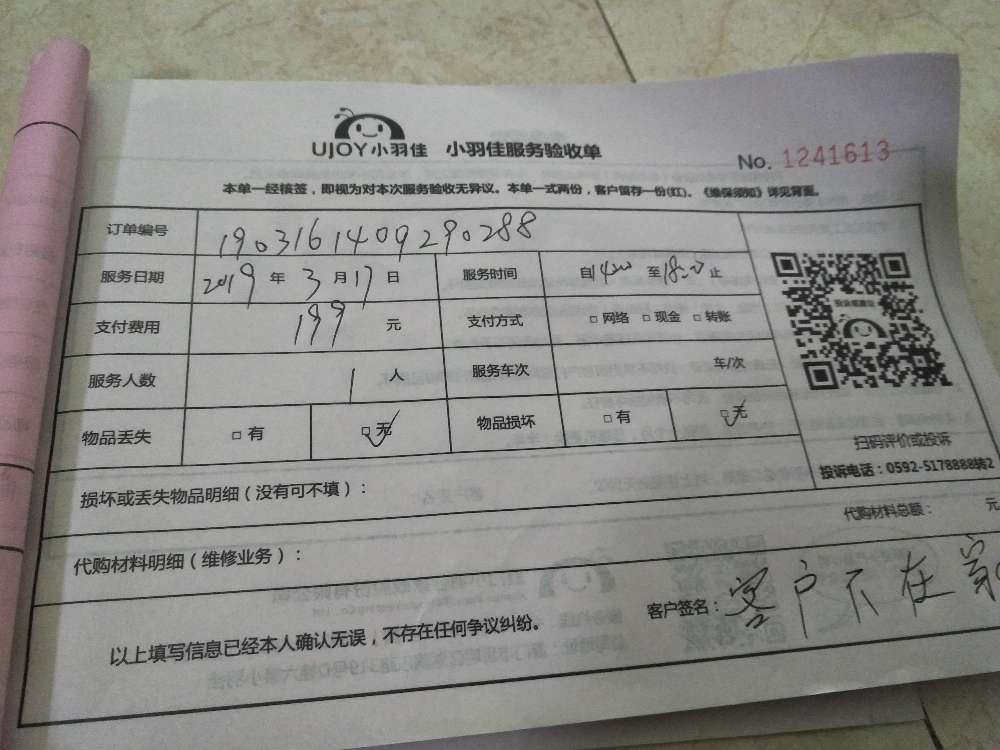 UJOY小羽佳 小羽佳服务验收单
No. 1241613
本单一经核签，即视为对本次服务验收无异议。本单一式两份，客户留存一份(红)。《维保须知》详见背面。
订单编号 1903161409290288
服务日期 2019 年 3 月 17 日 服务时间 自1400 至18:00止
支付费用 199 元 支付方式 □ 网络 □ 现金 □ 转账
服务人数 1 人 服务车次 车/次
物品丢失 □ 有 □ 无 物品损坏 □ 有 □ 无
扫码评价或投诉
投诉电话：0592-5178888转2
损坏或丢失物品明细（没有可不填）：
代购材料总额： 元
代购材料明细（维修业务）：
客户签名： 客户不在家
以上填写信息已经本人确认无误，不存在任何争议纠纷。